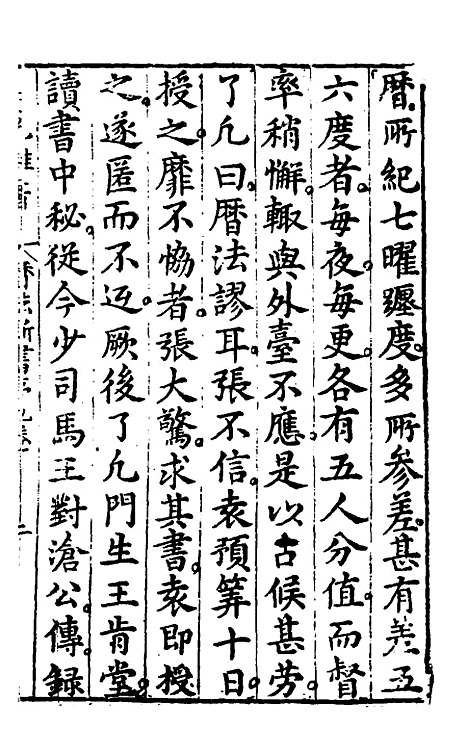 曆所紀七曜躔度多所參差甚有差五
六度者每夜每更各有五人分值而督
率稍懈輙與外臺不應是以古候甚勞
了凡曰曆法謬耳張不信袁預筭十日
授之靡不恊者張大驚求其書袁即授
之遂匿而不返厥後了凡門生王肯堂
讀書中秘從今少司馬王對滄公傳録